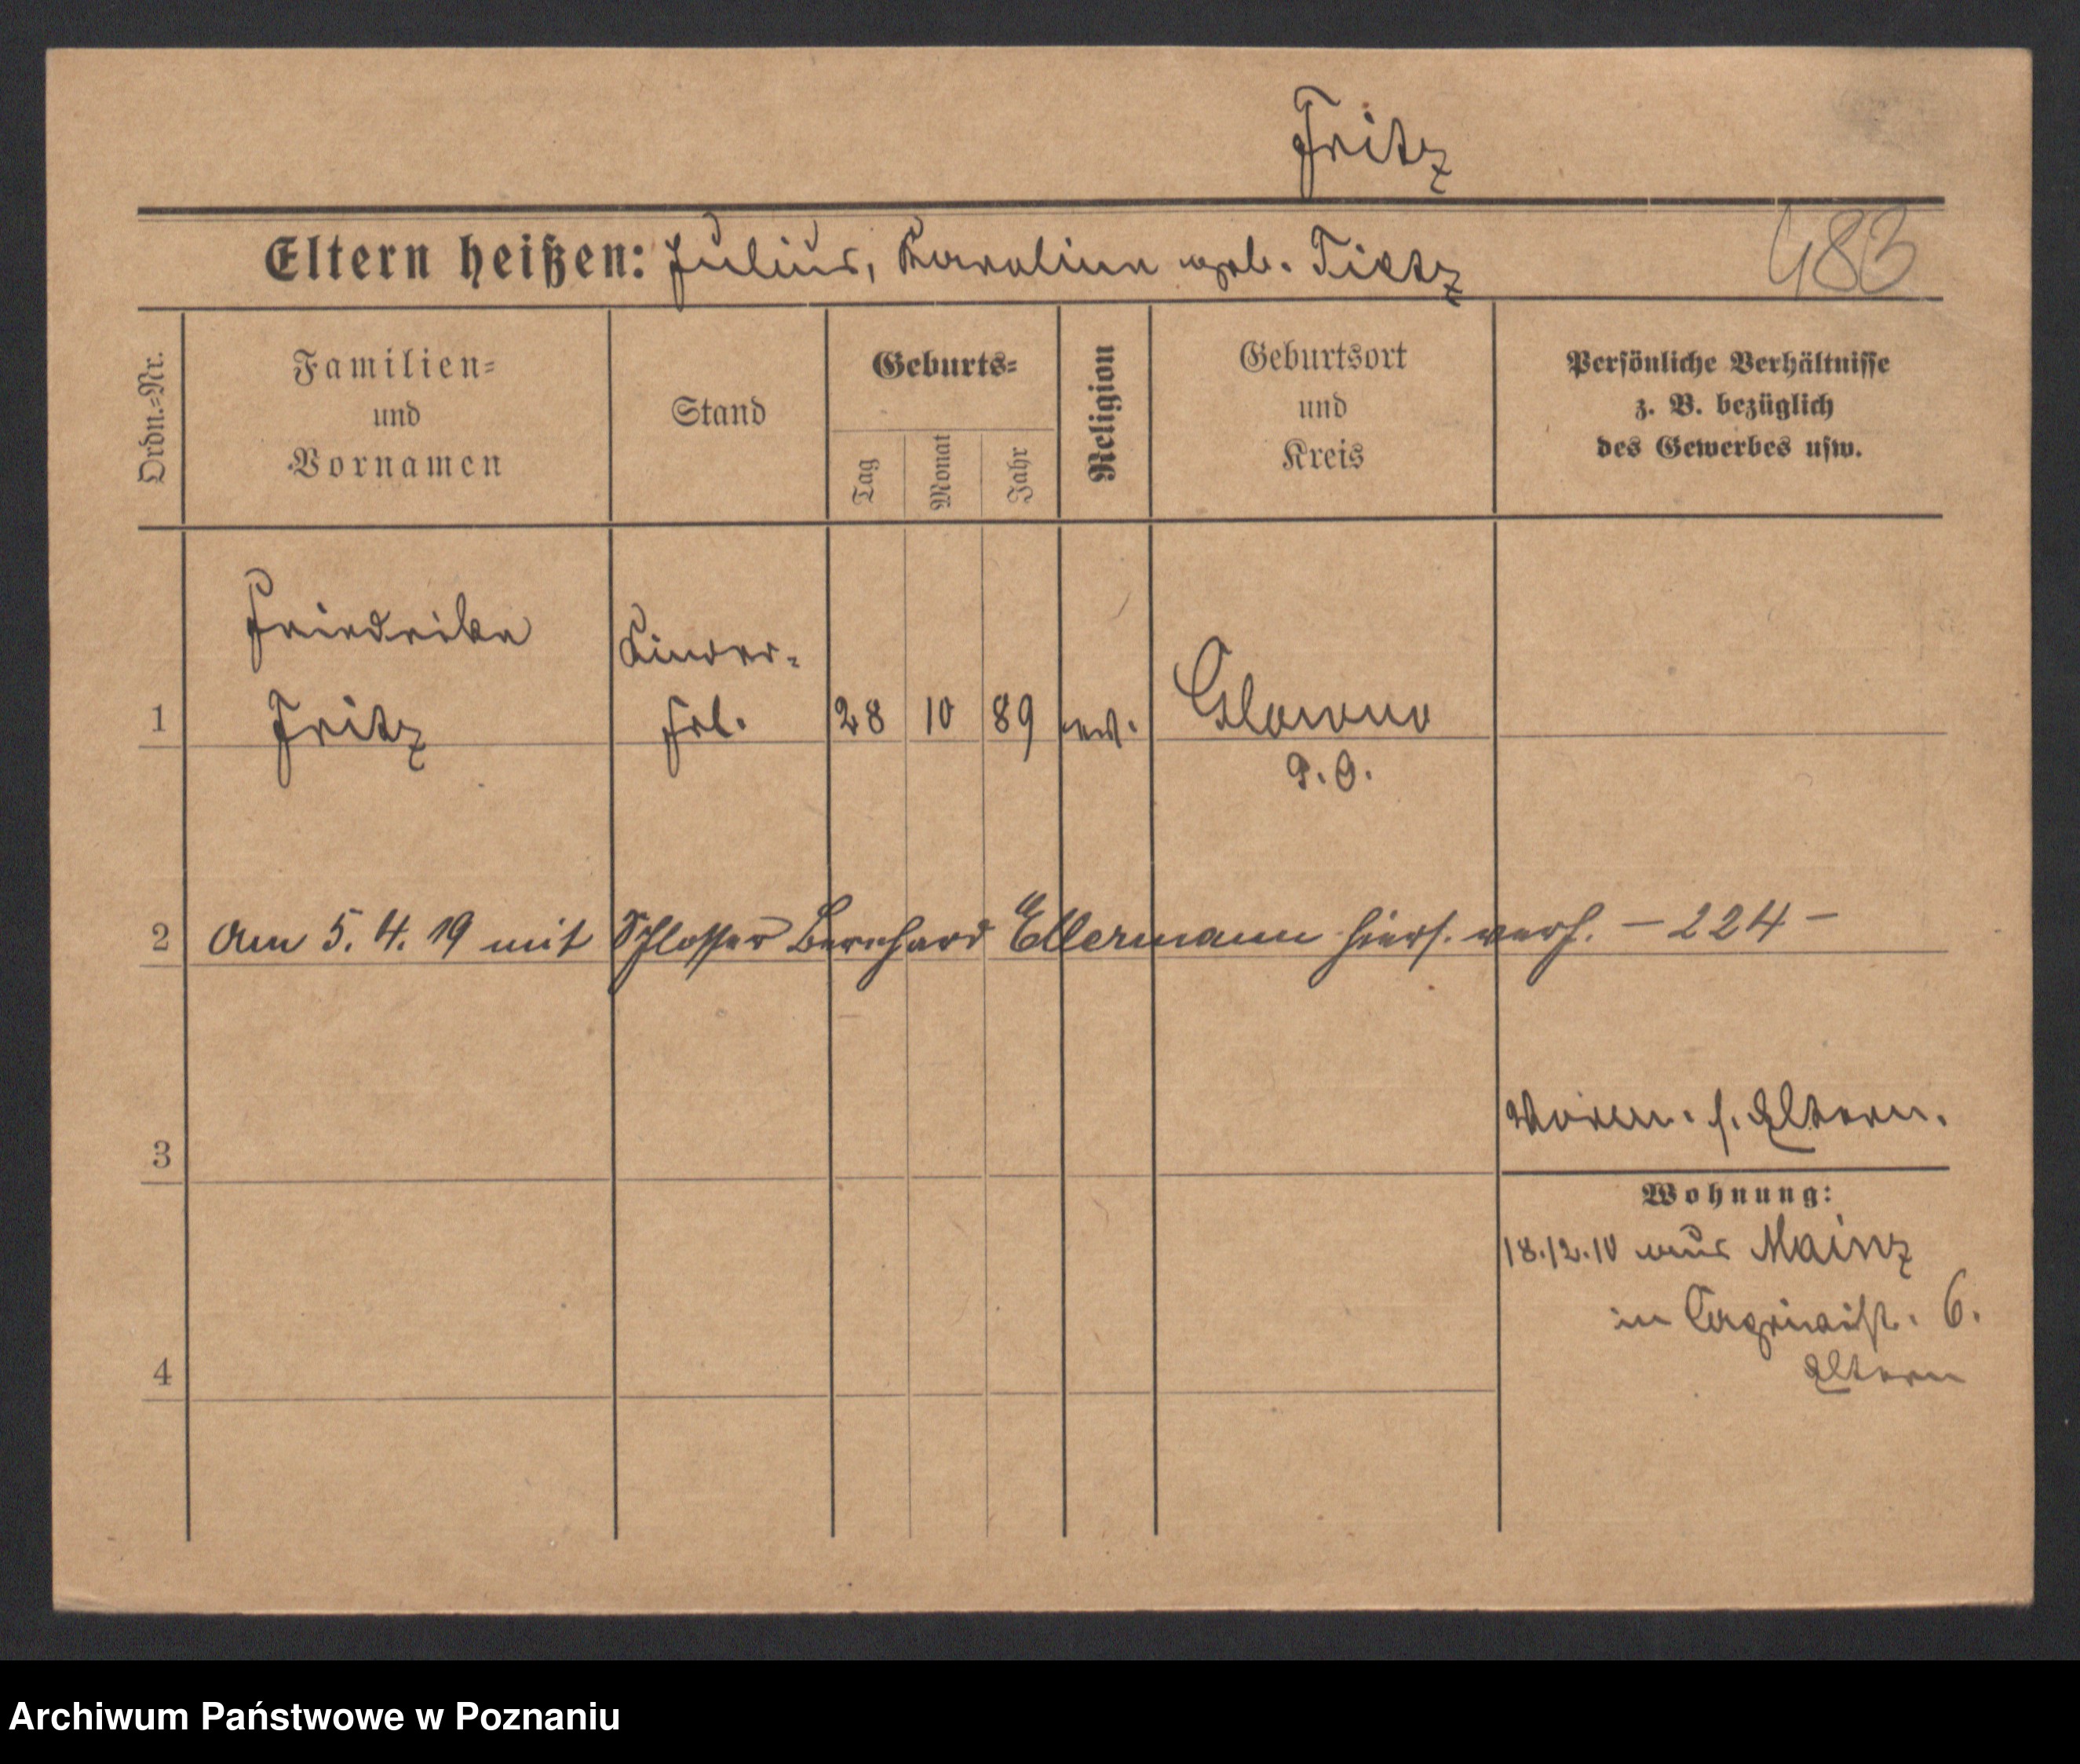 Fritz
Eltern heißen: Julius, Karoline geb. Tietz 483
Ordn.=Nr.
Familien=
und
Vornamen
Stand
Geburts=
Tag
Monat
Jahr
Religion
Geburtsort
und
Kreis
Persönliche Verhältnisse
z. B. bezüglich
des Gewerbes usw.
Friederike Kinder-
1 Fritz Frl. 28 10 89 ev. Glowno
P. O.
2 Am 5. 4. 19 mit Schlosser Bernhard Ellermann hiers. verh. - 224 -
s. Eltern.
3
Wohnung:
18.12.10 aus Mainz
in 6.
Eltern
4
Archiwum Państwowe w Poznaniu